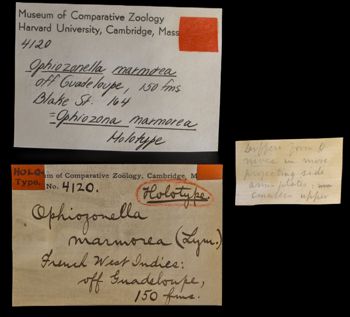 Museum of Comparative Zoology
Harvard University, Cambridge, Mass
4120
Ophiozonella marmorea
off Guadeloupe, 150 fms.
Blake St. 164
=Ophiozona marmorea
Holotype
HOLO
Type.
m of Comparative Zoölogy, Cambridge, M
No. 4120.
Holotype
Ophiozonella
marmorea (Lym.)
French West Indies:
off Guadeloupe,
150 fms.
Differs from O
nivea in more
projecting side
arm plates;
smaller upper